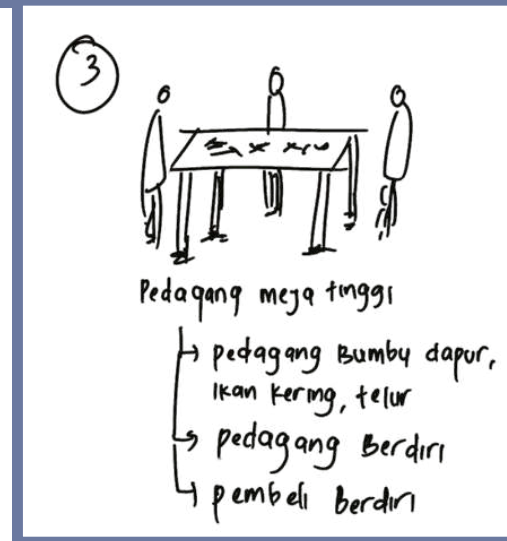 3
Pedagang meja tinggi
pedagang Bumbu dapur,
Ikan kering, telur
pedagang Berdiri
pembeli berdiri